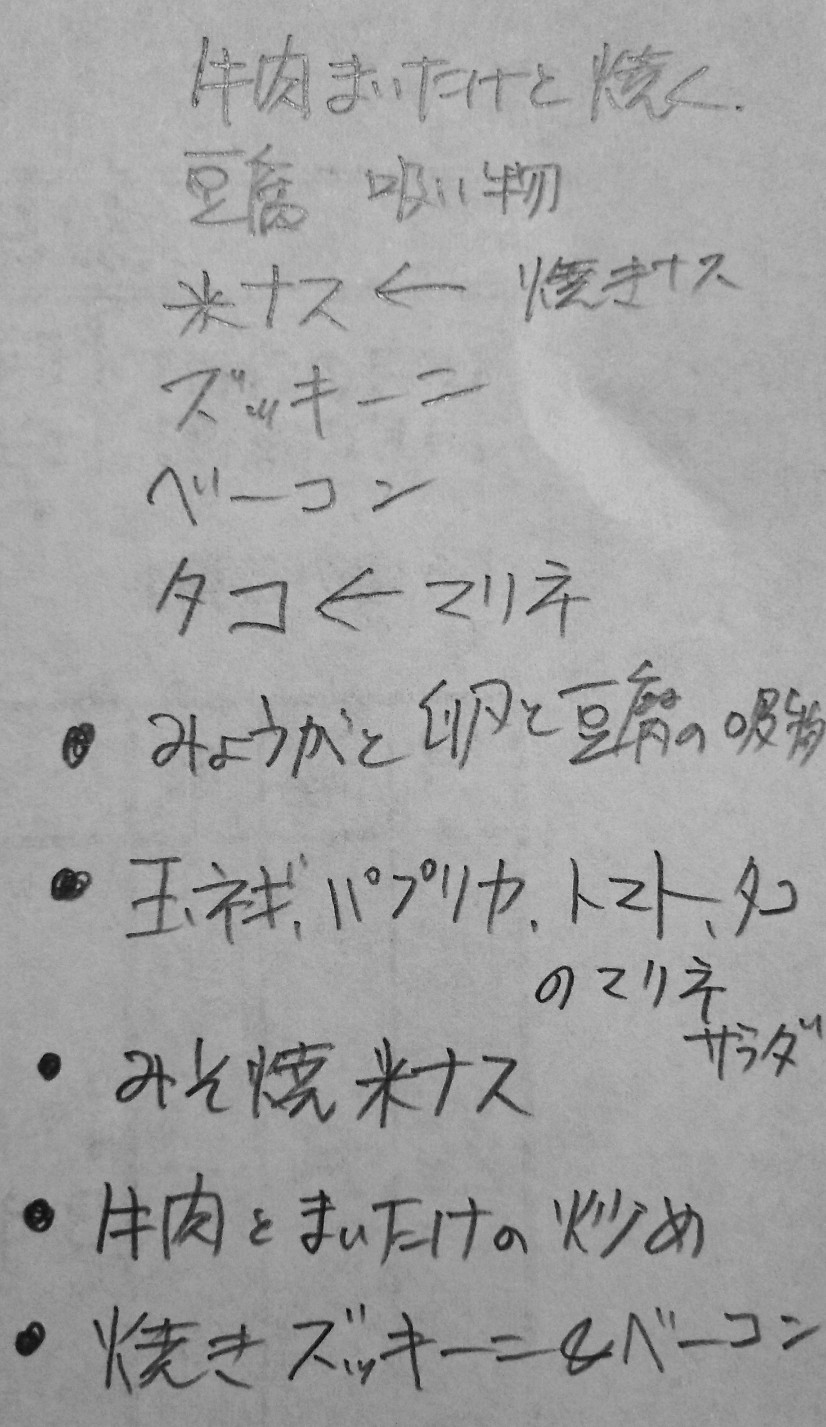 牛肉まいたけと焼く.
豆腐 吸い物
米ナス ← 焼きナス
ズッキーニ
ベーコン
タコ ← マリネ
● みょうがと卵と豆腐の吸物
● 玉ネギ、パプリカ、トマト、タコ
のマリネ
サラダ
● みそ焼米ナス
● 牛肉とまいたけの炒め
● 焼きズッキーニ&ベーコン